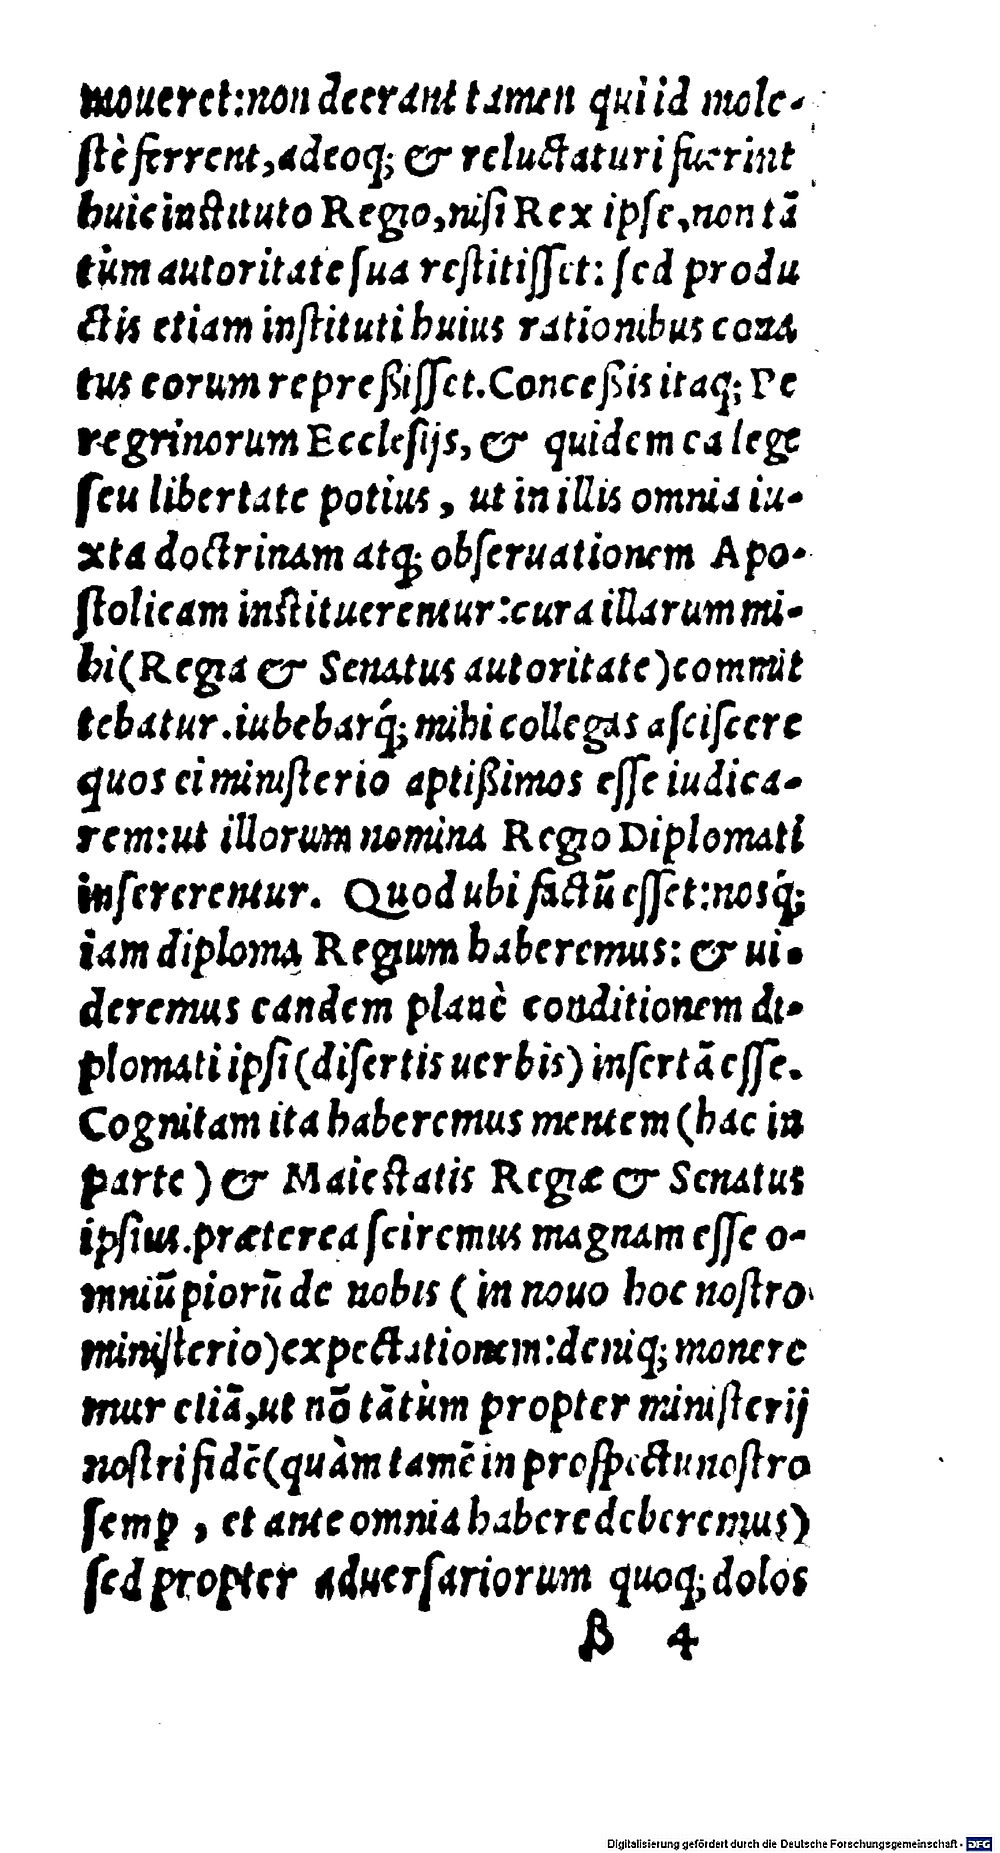 moueret:non deerant tamen qui id mole-
ſtè ferrent, adeoq; & reluctaturi fuerint
huic inſtituto Regio, niſi Rex ipſe, non tã
tùm autoritate ſua reſtitiſſet: ſed produ
ctis etiam inſtituti huius rationibus cona
tus eorum repreßiſſet. Conceßis itaq; Pe
regrinorum Eccleſijs, & quidem ea lege
ſeu libertate potius, ut in illis omnia iu-
xta doctrinam atq; obſeruationem Apo-
ſtolicam inſtituerentur: cura illarum mi-
hi (Regia & Senatus autoritate) commit
tebatur. iubebarq́; mihi collegas aſciſcere
quos ei miniſterio aptißimos eſſe iudica-
rem: ut illorum nomina Regio Diplomati
inſererentur. Quod ubi factũ eſſet: nosq́;
iam diploma Regium haberemus: & ui-
deremus eandem planè conditionem di-
plomati ipſi (diſertis uerbis) inſertã eſſe.
Cognitam ita haberemus mentem (hac in
parte) & Maieſtatis Regiæ & Senatus
ipſius. præterea ſciremus magnam eſſe o-
mniũ piorũ de nobis (in nouo hoc noſtro
miniſterio) expectationem: deniq; monere
mur etiã, ut nõ tãtùm propter miniſterij
noſtri fidẽ (quàm tamẽ in proſpectu noſtro
ſemꝑ, et ante omnia habere deberemus)
ſed propter aduerſariorum quoq; dolos
B 4
Digitalisierung gefördert durch die Deutsche Forschungsgemeinschaft - DFG